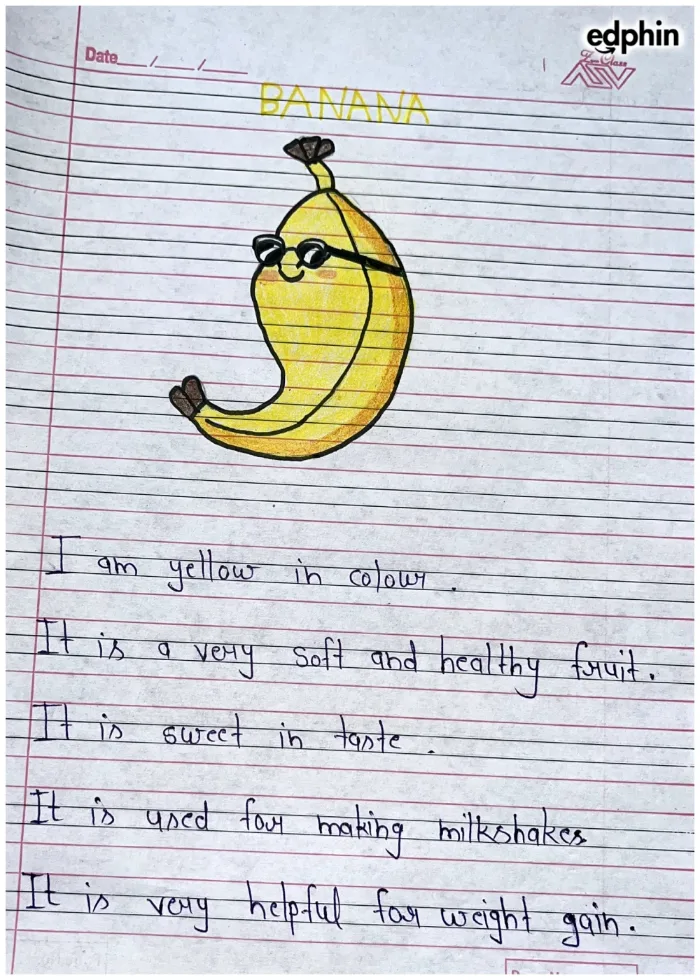 edphin
Date __/__/__
BANANA
I am yellow in colour.
It is a very soft and healthy fruit.
It is sweet in taste.
It is used for making milkshakes
It is very helpful for weight gain.